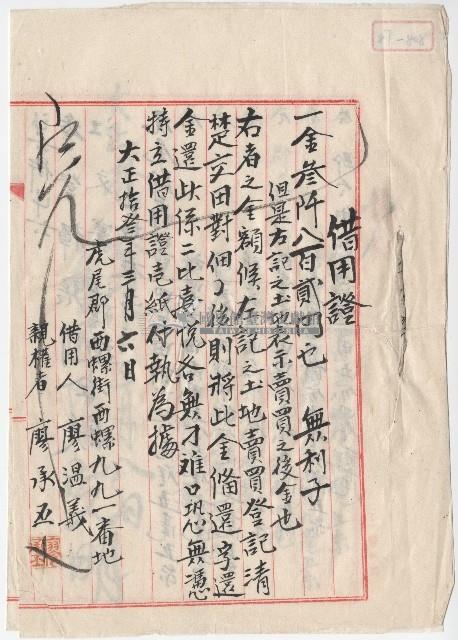 借用證
一金叄阡八百貳 円也　無利子
但是左記之土地表示賣買之後金也
右者之金額候左記之土地賣買登記清
楚交田對佃了後則將此金備還字還
金還此係二比喜悅各無刁难口恐無憑
特立借用證壱紙付執為據
大正拾叁年三月六日
虎尾郡西螺街西螺九九一番地
借用人　廖溫義
親權者　廖承丕